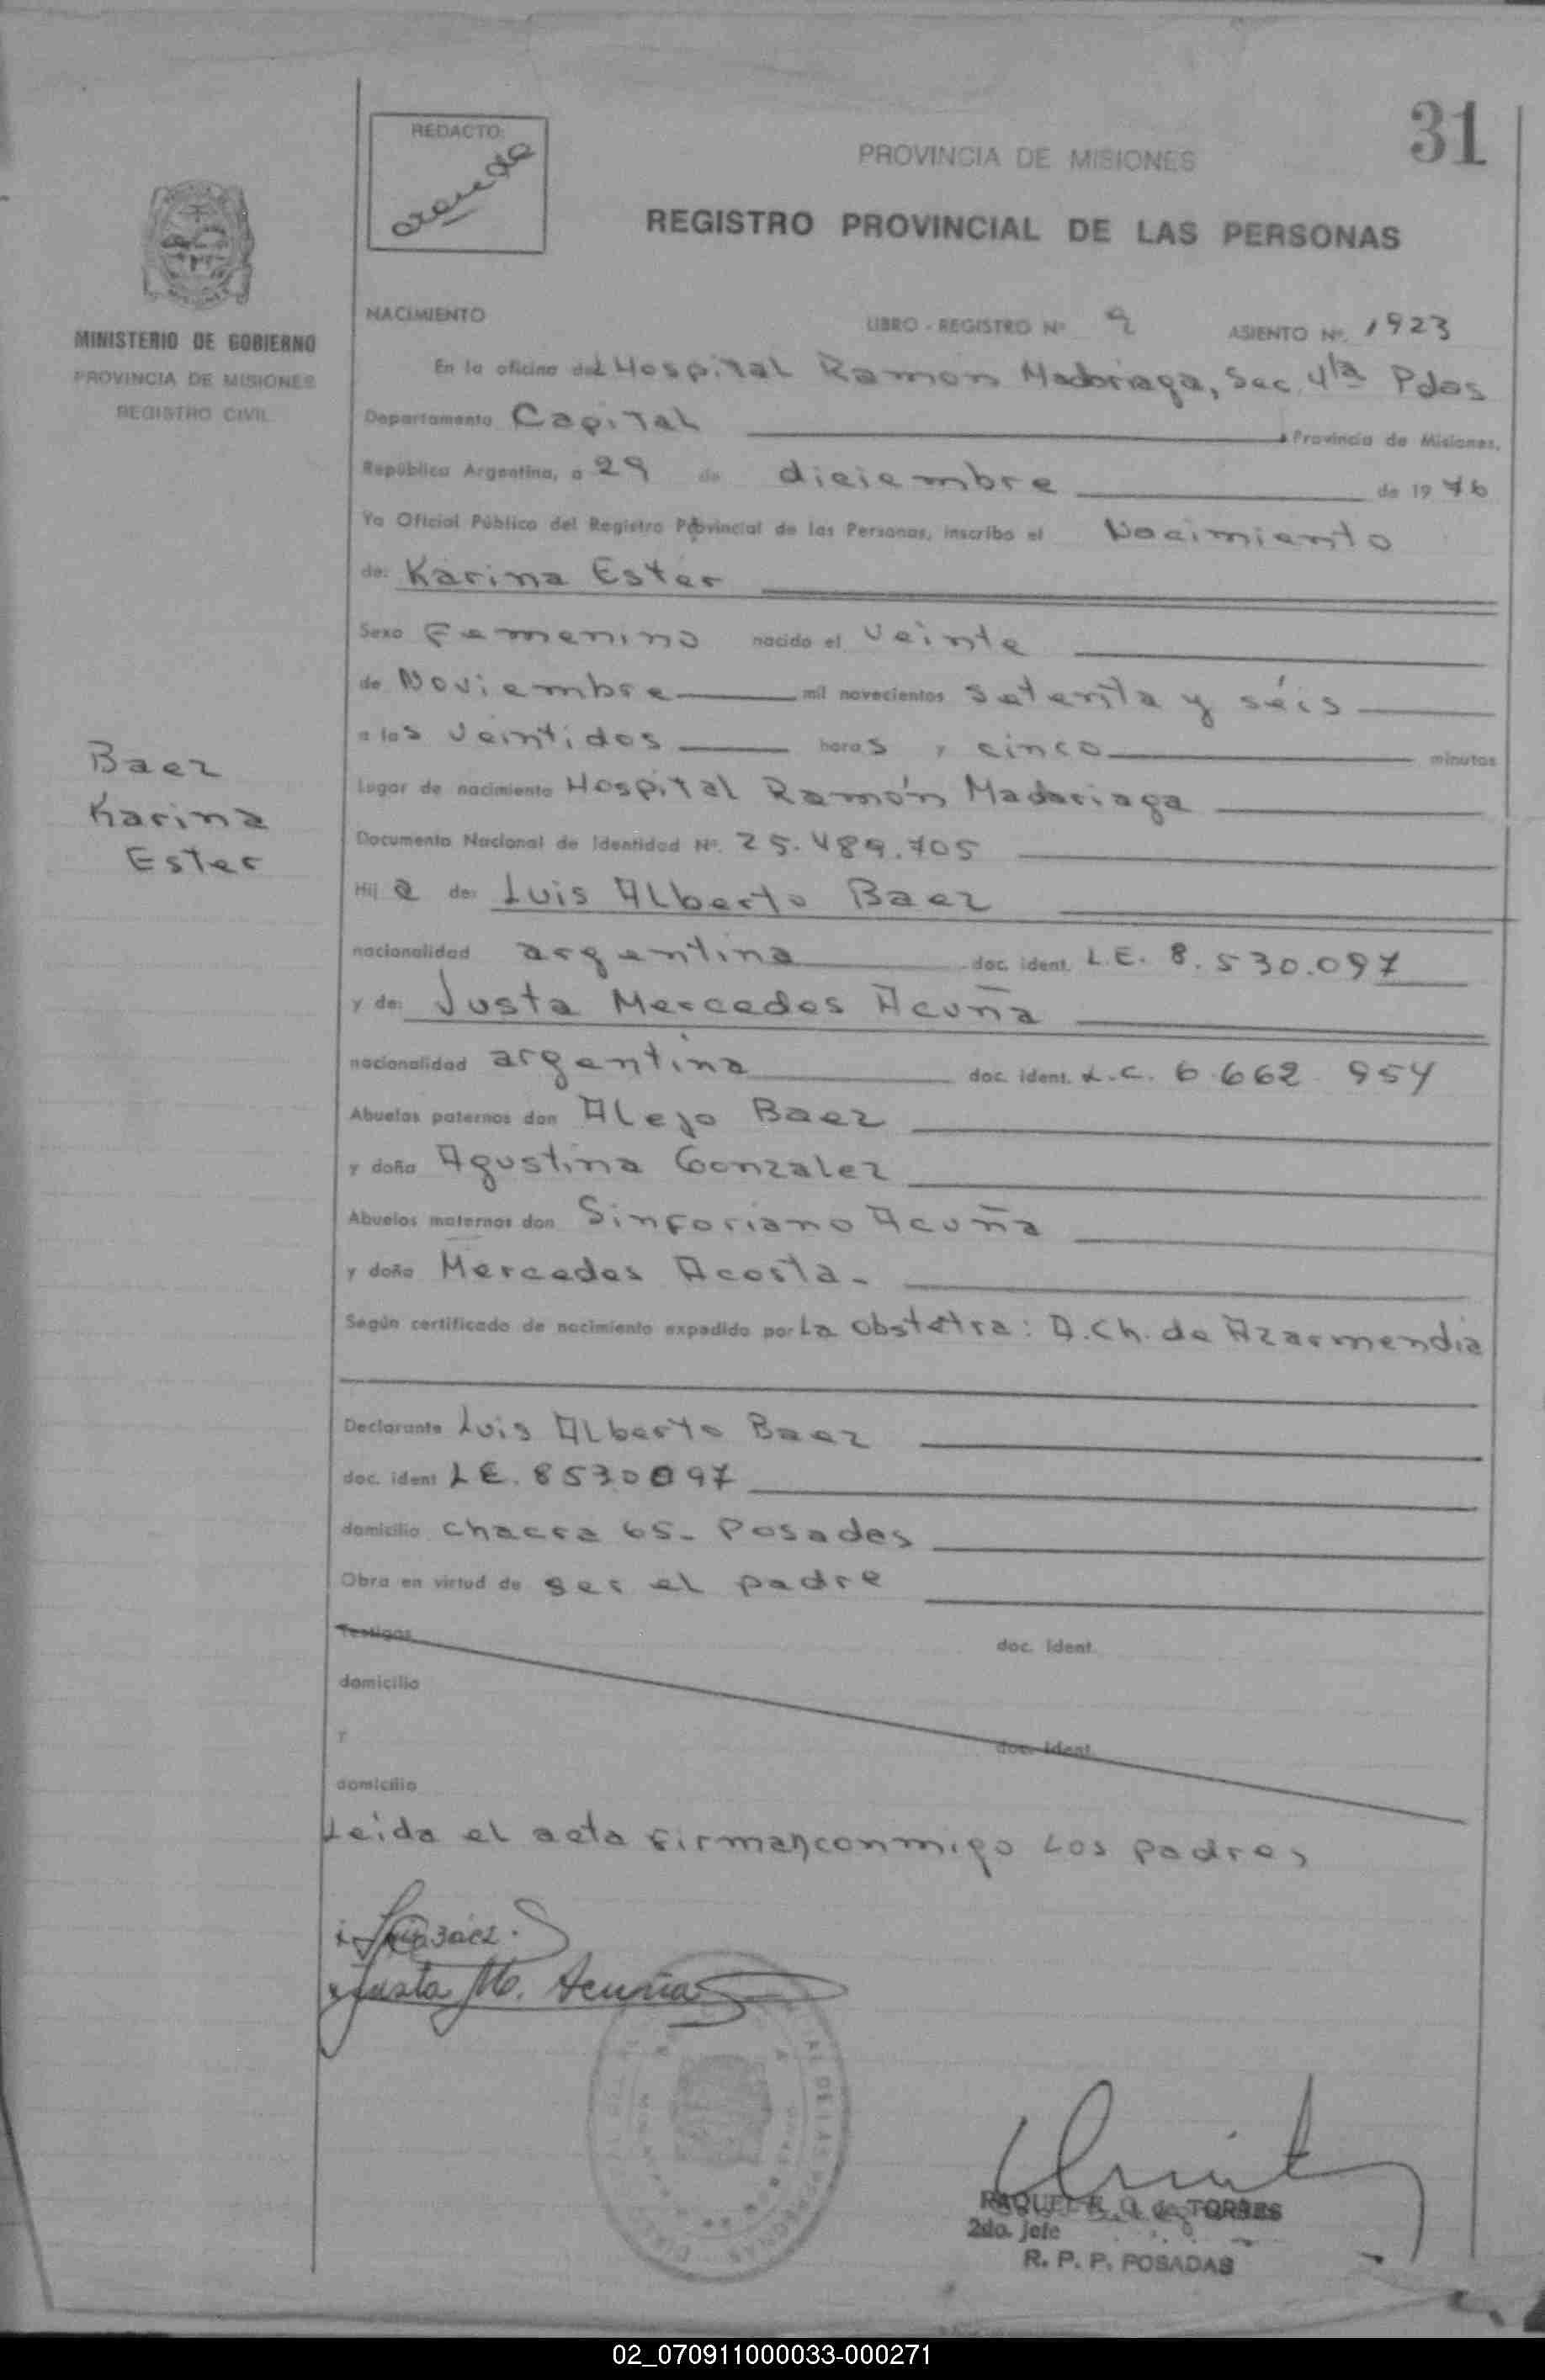 31
REDACTO:
PROVINCIA DE MISIONES
REGISTRO PROVINCIAL DE LAS PERSONAS
MINISTERIO DE GOBIERNO
PROVINCIA DE MISIONES
REGISTRO CIVIL
NACIMIENTO LIBRO - REGISTRO Nº 9 ASIENTO Nº. 1923
En la oficina del Hospital Ramon Madariaga, Sec. 4ta Pdas
Departamento Capital Provincia de Misiones,
República Argentina, a 29 de diciembre de 1976
Yo Oficial Público del Registro Provincial de las Personas, inscribo el Nacimiento
de: Karina Ester
Sexo Femenino nacido el Veinte
de Noviembre mil novecientos setenta y séis
a las veintidos horas y cinco minutos
Baez
Karina
Ester
Lugar de nacimiento Hospital Ramón Madariaga
Documento Nacional de Identidad Nº. 25.489.705
Hij a de: Luis Alberto Baez
nacionalidad argentina doc. ident. L.E. 8.530.097
y de: Justa Mercedes Acuña
nacionalidad argentina doc. ident. L.C. 6.662.954
Abuelos paternos don Alejo Baez
y doña Agustina Gonzalez
Abuelos maternos don Sinforiano Acuña
y doña Mercedes Acosta.-
Según certificado de nacimiento expedido por La obstetra: D. Ch. de Azarmendia
Declarante Luis Alberto Baez
doc. ident L.E. 8530097
domicilio chacra 65- Posadas
Obra en virtud de ser el padre
Testigos doc. ident.
domicilio
y doc. ident.
domicilio
Leida el acta firman conmigo Los padres
Justa M. Acuña
RAQUEL E. Q. de TORRES
2do. Jefe
R. P. P. POSADAS
02_070911000033-000271